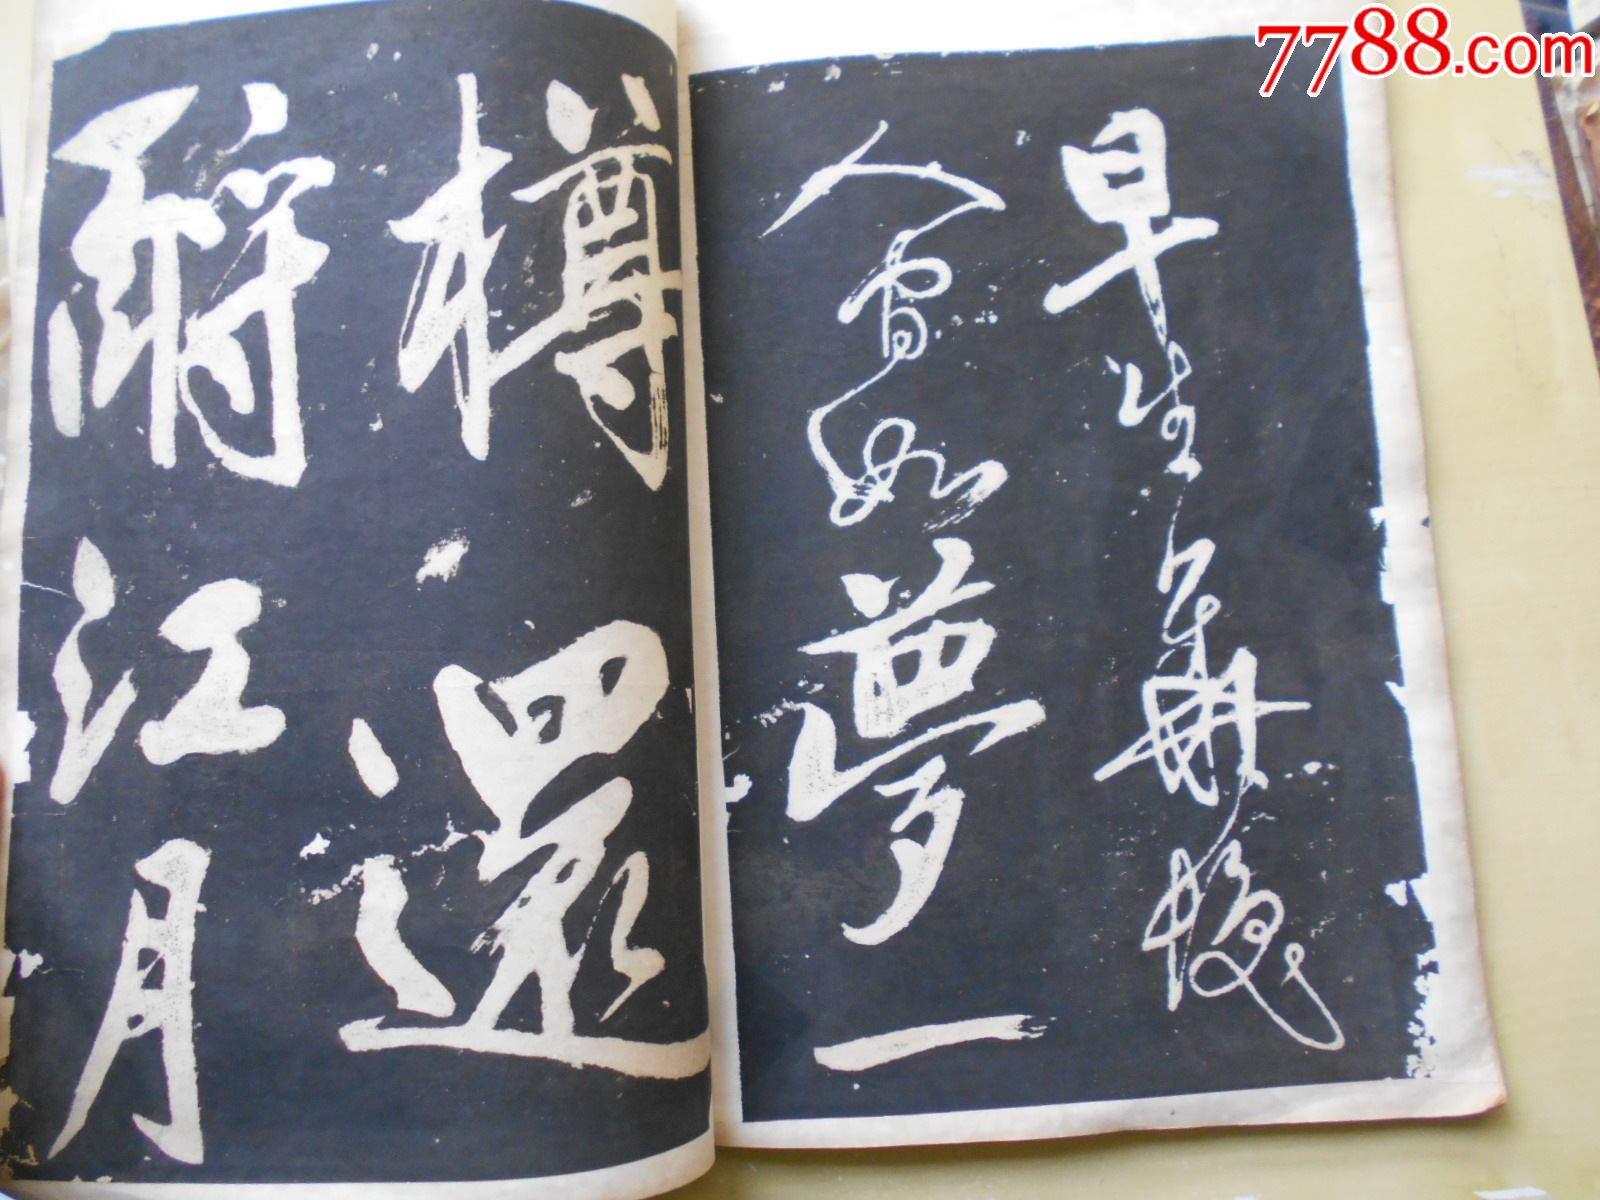 7788.com
早生華髮
人間如夢一
樽還
酹江月